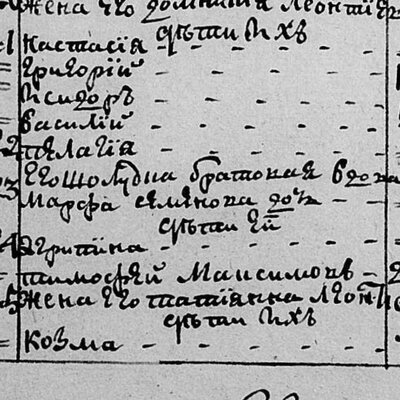 Жена Его Домникиа Леонтіе
дѣти Ихъ
Настасія
Григорій
Исидоръ
Василій
Пелагія
Его Шолудка братовая вдова
Марфа Семенова дочь
дѣти Ей
Агрипина
Тимофей Максимовъ
Жена Его Татиянна Леонт
дѣти Ихъ
Козма